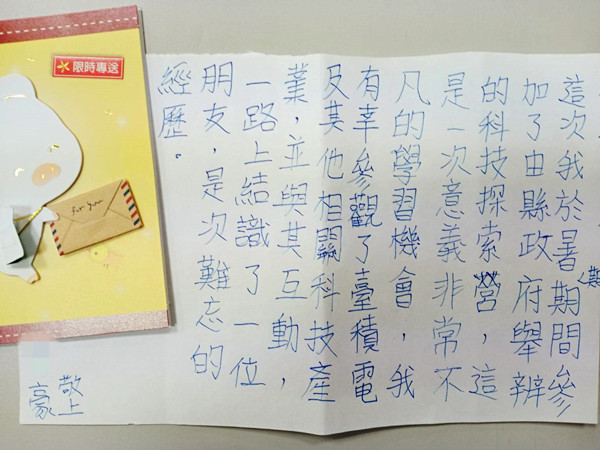 這次我於暑期間參
加了由縣政府舉辦
的科技探索營，這
是一次意義非常不
凡的學習機會，我
有幸參觀了臺積電
及其他相關科技產
業，並與其互動，
一路上結識了一位
朋友，是次難忘的
經歷。
敬上
豪
限時專送
For you